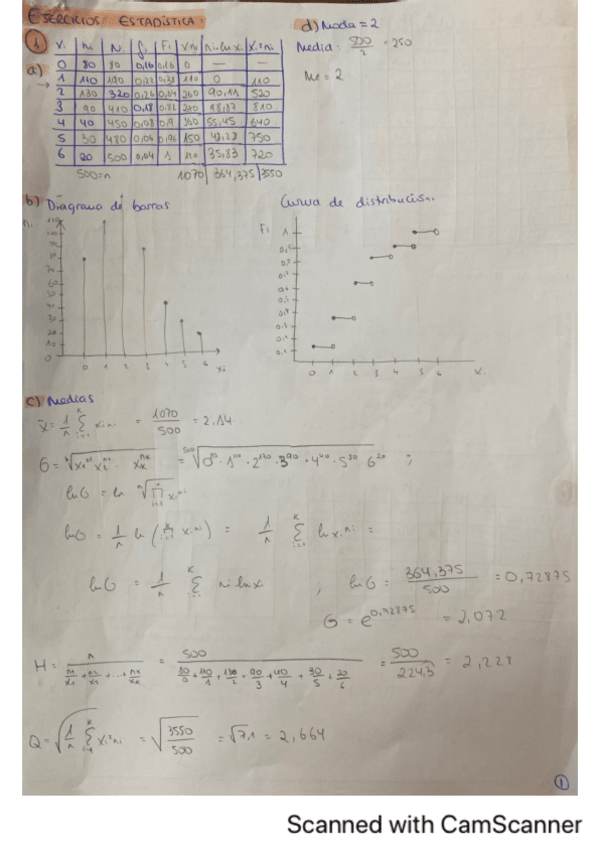 EJERCICIOS ESTADÍSTICA:
1 xi ni Ni fi Fi xini ni·lnxi xi²ni
a)
0 80 80 0,16 0,16 0 — —
1 110 190 0,22 0,38 110 0 110
2 130 320 0,26 0,64 260 90,11 520
3 90 410 0,18 0,82 270 98,87 810
4 40 450 0,08 0,9 160 55,45 640
5 30 480 0,06 0,96 150 48,28 750
6 20 500 0,04 1 120 35,83 720
500=n 1070 364,375 3550
d) Moda = 2
Media = 500/2 = 250
Me = 2
b) Diagrama de barras
ni
0 1 2 3 4 5 6 xi
Curva de distribución.
Fi
0 1 2 3 4 5 6 xi
c) Medias
x̄ = 1/n Σ xini = 1070/500 = 2,14
G = ⁿ√(x1ⁿ¹ x2ⁿ² ... xkⁿᵏ) = ⁵⁰⁰√(0⁸⁰·1¹¹⁰·2¹³⁰·3⁹⁰·4⁴⁰·5³⁰ 6²⁰) ;
lnG = ln ⁿ√(∏ xiⁿⁱ)
lnG = 1/n ln (∏ xiⁿⁱ) = 1/n Σ ln xiⁿⁱ =
lnG = 1/n Σ ni lnxi ; lnG = 364,375/500 = 0,72875
G = e^0,72875 = 2,072
H = n/(n1/x1 + n2/x2 + ... + nk/xk) = 500/(80/0 + 110/1 + 130/2 + 90/3 + 40/4 + 30/5 + 20/6) = 500/224,3 = 2,228
Q = √(1/n Σ xi²ni) = √(3550/500) = √7,1 = 2,664
1
Scanned with CamScanner